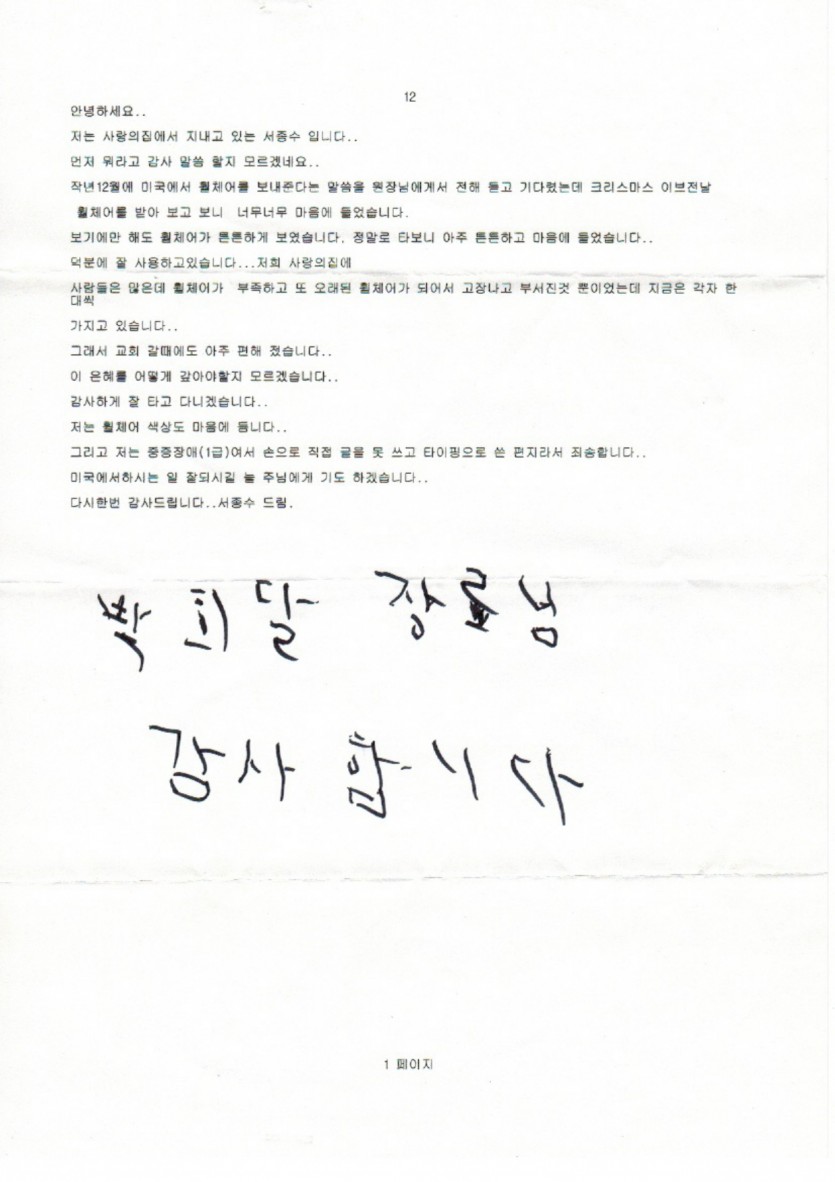 12
안녕하세요..
저는 사랑의집에서 지내고 있는 서종수 입니다..
먼저 뭐라고 감사 말씀 할지 모르겠네요..
작년12월에 미국에서 휠체어를 보내준다는 말씀을 원장님에게서 전해 듣고 기다렸는데 크리스마스 이브전날
휠체어를 받아 보고 보니 너무너무 마음에 들었습니다.
보기에만 해도 휠체어가 튼튼하게 보였습니다. 정말로 타보니 아주 튼튼하고 마음에 들었습니다..
덕분에 잘 사용하고있습니다...저희 사랑의집에
사람들은 많은데 휠체어가 부족하고 또 오래된 휠체어가 되어서 고장나고 부서진것 뿐이었는데 지금은 각자 한
대씩
가지고 있습니다..
그래서 교회 갈때에도 아주 편해 졌습니다..
이 은혜를 어떻게 갚아야할지 모르겠습니다..
감사하게 잘 타고 다니겠습니다..
저는 휠체어 색상도 마음에 듭니다..
그리고 저는 중증장애(1급)여서 손으로 직접 글을 못 쓰고 타이핑으로 쓴 편지라서 죄송합니다..
미국에서하시는 일 잘되시길 늘 주님에게 기도 하겠습니다..
다시한번 감사드립니다..서종수 드림.
박희달 장로님
감사합니다
1 페이지